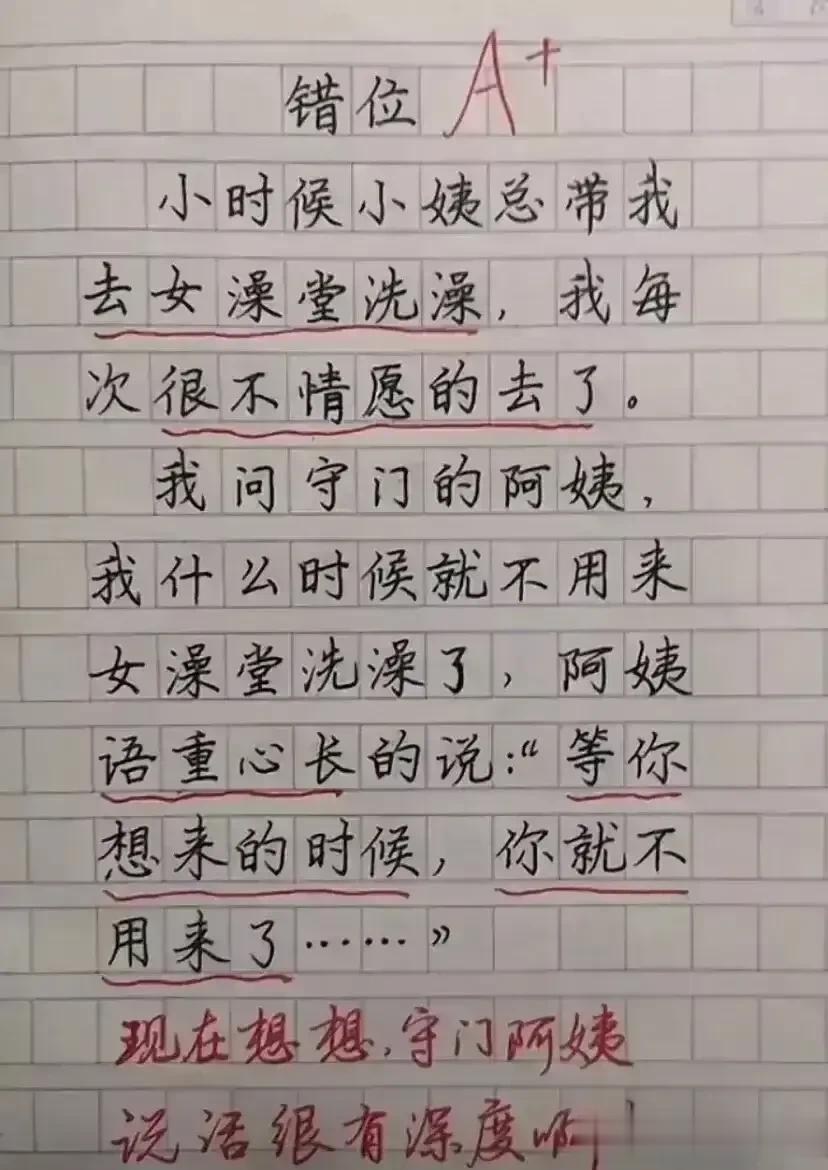 错位 A+
小时候小姨总带我
去女澡堂洗澡，我每
次很不情愿的去了。
我问守门的阿姨，
我什么时候就不用来
女澡堂洗澡了，阿姨
语重心长的说：“等你
想来的时候，你就不
用来了……”
现在想想，守门阿姨
说话很有深度啊！